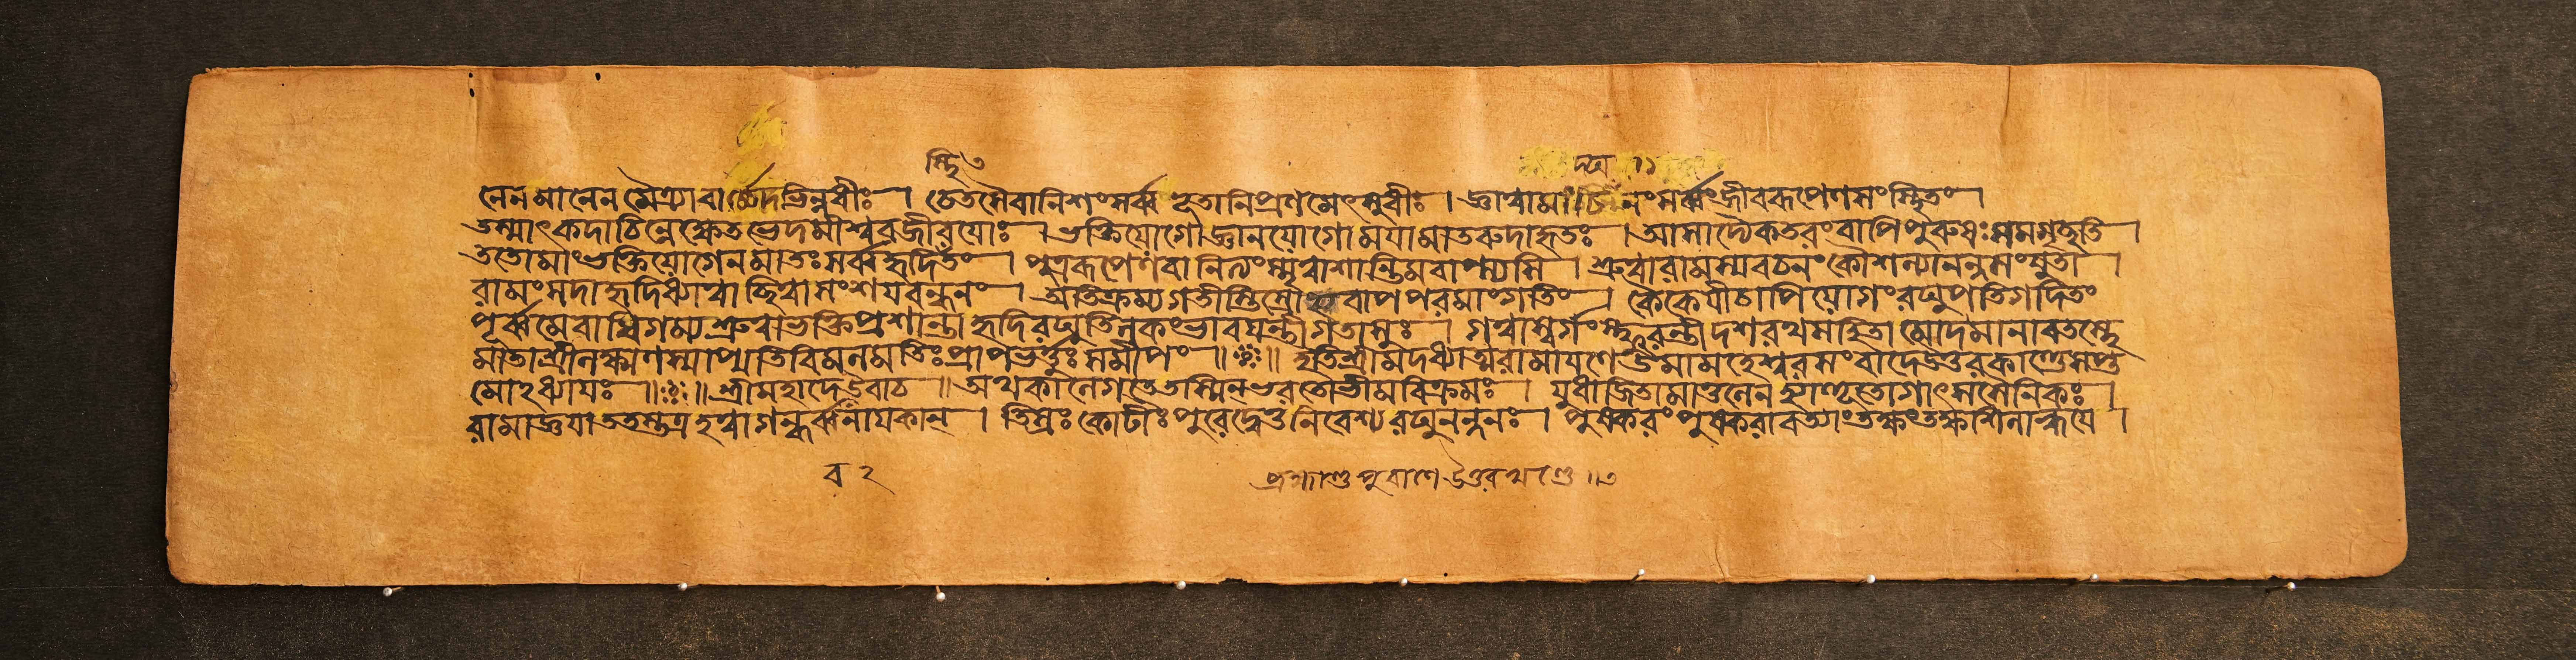 নেনমানেনমৈত্র্যাচার্চ্চেদভিন্নধীঃ । চেতসৈবানিশংসর্ব্বভূতানিপ্রণমেৎসুধীঃ । জ্ঞাত্বামাং নংসর্ব্বংজীবরূপেণসংস্থিতং ।
তস্মাৎকদাচিন্নেক্ষেতভেদমীশ্বরজীবয়োঃ । ভক্তিয়োগোজ্ঞানয়োগোময়ামাতরুদাহৃতঃ । আসাদ্যৈকতরংবাপিপুরুষঃসমমৃচ্ছতি ।
ততোমাংভক্তিয়োগেনমাতঃসর্ব্বহৃদিস্থিতং । পুত্ররূপেণবানিত্যংস্মৃত্বাশান্তিমবাপ্স্যসি । শ্রুত্বারামস্যবচনংকৌশল্যানন্দসংযুতা ।
রামংসদাহৃদিধ্যাত্বাছিত্বাসংশয়বন্ধনং । অতিক্রম্যগতীস্তিস্রোপ্যবাপপরমাংগতিং । কৈকেয়ীচাপিয়োগংরঘুপতিগদিতং
পূর্ব্বমেবাধিগম্যশ্রুত্বাভক্তিপ্রশান্তাহৃদিরঘুতিলকংভাবয়ন্তীগতাসুঃ । গত্বাস্বর্গংস্ফুরন্তীদশরথসহিতামোদমানাবতস্থে
মাতাশ্রীলক্ষ্মণস্যাপ্যতিবিমলমতিঃপ্রাপভর্ত্তুঃসমীপং ॥ঃ॥ ইতিশ্রীমদধ্যাত্মরামায়ণেউমামহেশ্বরসংবাদেউত্তরকাণ্ডেসপ্ত
মোঽধ্যায়ঃ ॥ঃ॥ শ্রীমহাদেবউবাচ ॥ অথকালেগতেতস্মিন্ভরতোভীমবিক্রমঃ । যুধাজিতামাতুলেনহ্যাহূতোগাৎসসৈনিকঃ ।
রামাজ্ঞয়াততস্তত্রহত্বাগন্ধর্ব্বনায়কান্ । তিস্রঃকোটীঃপুরেদ্বেতুনিবেশ্যরঘুনন্দনঃ । পুষ্করংপুষ্করাবত্যাংতক্ষংতক্ষশিলাহ্বয়ে ।
ব্রহ্মাণ্ডপুরাণেউত্তরখণ্ডে ॥